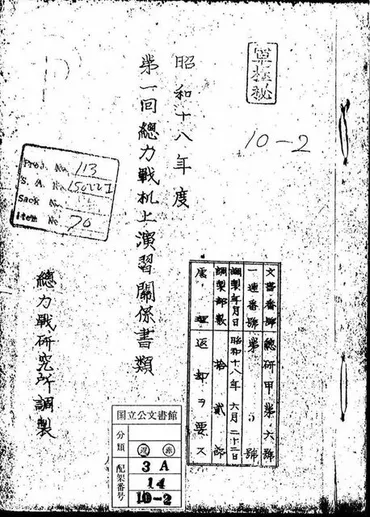 極秘
10-2
昭和十八年度
第一回總力戰机上演習關係書類
總力戰研究所調製
Proj. No. 113
S. A. No.
Sack No.
Item No. 70
文書番號 總研甲第六號
一連番號 第 5 號
調製年月日 昭和十八年六月二十三日
調製部數 拾貳部
處理 返却ヲ要ス
国立公文書館
分類
配架番号
3 A
14
10-2